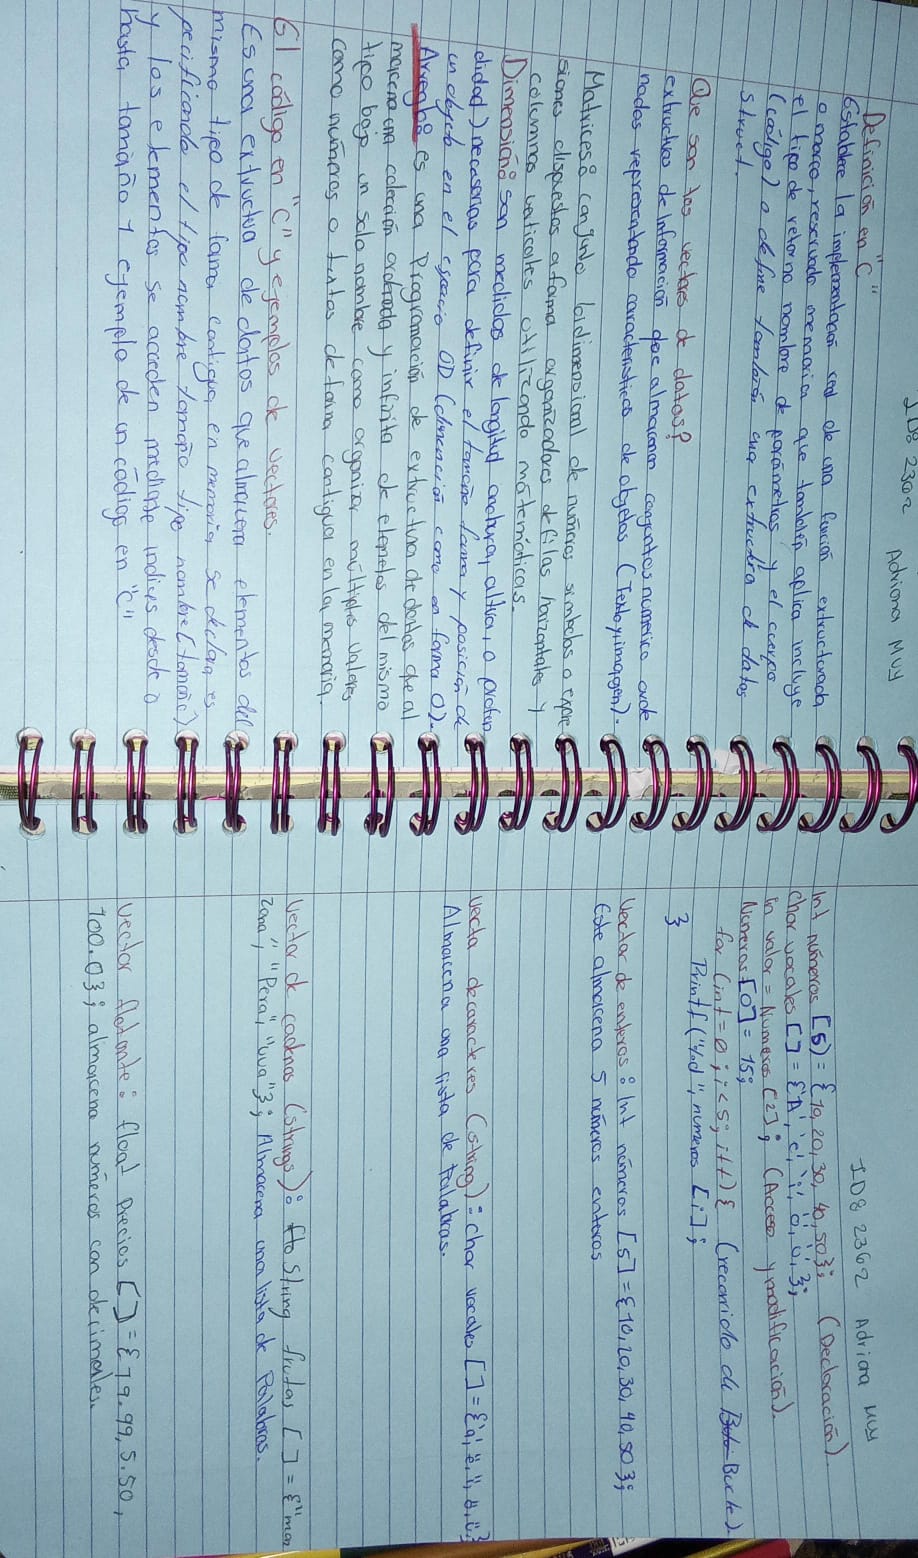 ID8 2362 Adriana Muy
Definición en "C"
Establece la implementación real de una función estructurada
o marco, reservado memoria que también aplica incluye
el tipo de retorno nombre de parámetros y el cuerpo
(código) o define también una extructura de datos
struct.
Que son los vectores de datos?
extructuras de información que almacenan conjuntos numerico orde
nados representando caracteristicas de objetos (Texto y imagen).
Matrices: conjunto bidimensional de números simbolos o expre
siones dispuestas a forma organizadores de filas horizontales y
columnas verticales utilizando mátemáticas.
Dimensión: son medidas de longitud anchura, altura, o profun
didad) necesarias para definir el tamaño forma y posición de
un objeto en el espacio OD (dimención cero o forma O).
Arreglo: es una Programación de extructura de datos que al
macena una colección ordenada y infinita de elemetos del mismo
tipo bajo un solo nombre como organiza múltiples valores
como números o textos de forma contigua en la memoria.
El código en "C" y ejemplos de vectores.
Es una extructura de datos que almacena elementos del
mismo tipo de forma contigua en memoria se declara es
pecificando el tipo nombre tamaño tipo nombre (tamaño)
y los elementos se acceden mediante indices desde 0
hasta tamaño 1 ejemplo de un código en "C"
ID8 2362 Adriana Muy
Int números [5) = {10, 20, 30, 40, 503; (Declaración)
char vocales [] = {'A', 'e', 'i', 'o, u, 3;
in valor = Numeros [2]; (Acceso y modificación).
Numeros [0] = 15;
for (int = 0; i < 5; i++) { (recorrido de Bucle).
Printf ("%d", numeros [i];
3
Vector de enteros: Int números [5] = {10, 20, 30, 40, 503;
Este almacena 5 números enteros
vecto de caracteres (string): char vocales [] = {'a', 'e, 'i', o, ü;}
Almacena una lista de Palabras.
Vector de cadenas (strings): String frutas [ ] = {"man
zana", "Pera", "uva"3; Almacena una lista de Palabras.
Vector flotante: float Precios [] = {19.99, 5.50,
100.03; almacena números con decimales.